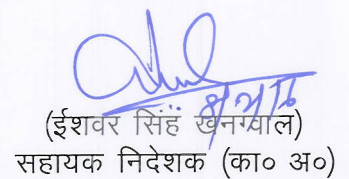 (ईशवर सिंह खनगवाल)
सहायक निदेशक (का० अ०)